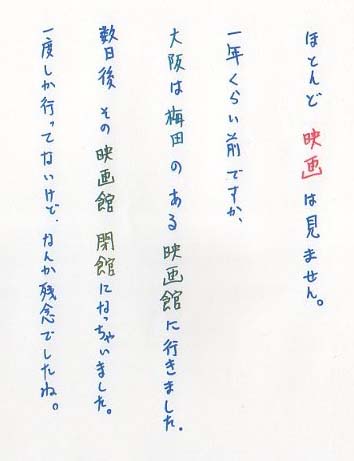 ほとんど 映画 は 見ません。
一年くらい前ですか、
大阪は梅田のある映画館に行きました.
数日後 その映画館 閉館になっちゃいました。
一度しか行ってないけど、なんか残念でしたね。